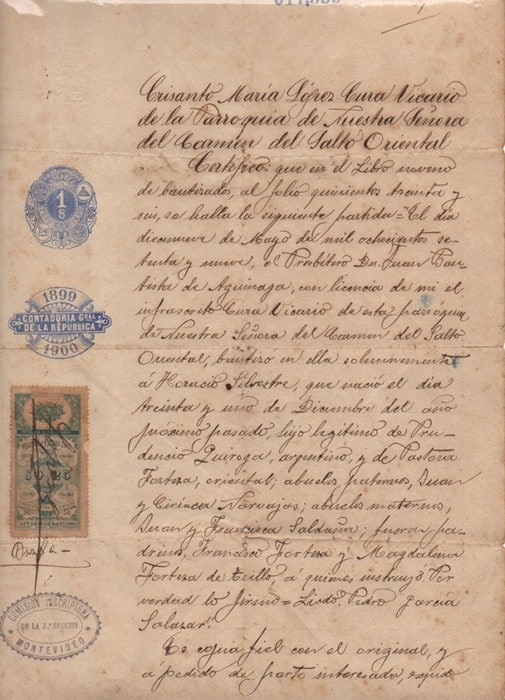 Crisanto María López Cura Vicario
de la Parroquia de Nuestra Señora
del Carmen del Salto Oriental
Certifico: que en el Libro noveno
de bautizados, al folio quinientos treinta y
seis, se halla la siguiente partida = "El dia
diecinueve de Mayo de mil ochocientos se-
tenta y nueve, el Presbitero Dn. Juan Bau-
tista de Azuinaga, con licencia de mi el
infrascrito Cura Vicario de esta parróquia
de Nuestra Señora del Carmen del Salto
Oriental, bautizó en ella solemnemente
á Horacio Silvestre, que nació el dia
treinta y uno de Diciembre del año
próximo pasado, hijo legítimo de Pru-
dencio Quiroga, argentino, y de Pastora
Forteza, oriental; abuelos paternos, Juan
y Cirinea Narvajas; abuelos maternos,
Juan y Francisca Saldaña; fueron pa-
drinos, Francisco Forteza y Magdalena
Forteza de Trillo, á quienes instruyó. Por
verdad lo firmo = Licdo. Pedro García
Salazar."
Es copia fiel con el original, y
á pedido de parte interesada, expido
1
1899
CONTADURIA GRAL
DE LA REPUBLICA
1900
COMISION INSCRIPTORA
DE LA 3ª SECCION
MONTEVIDEO